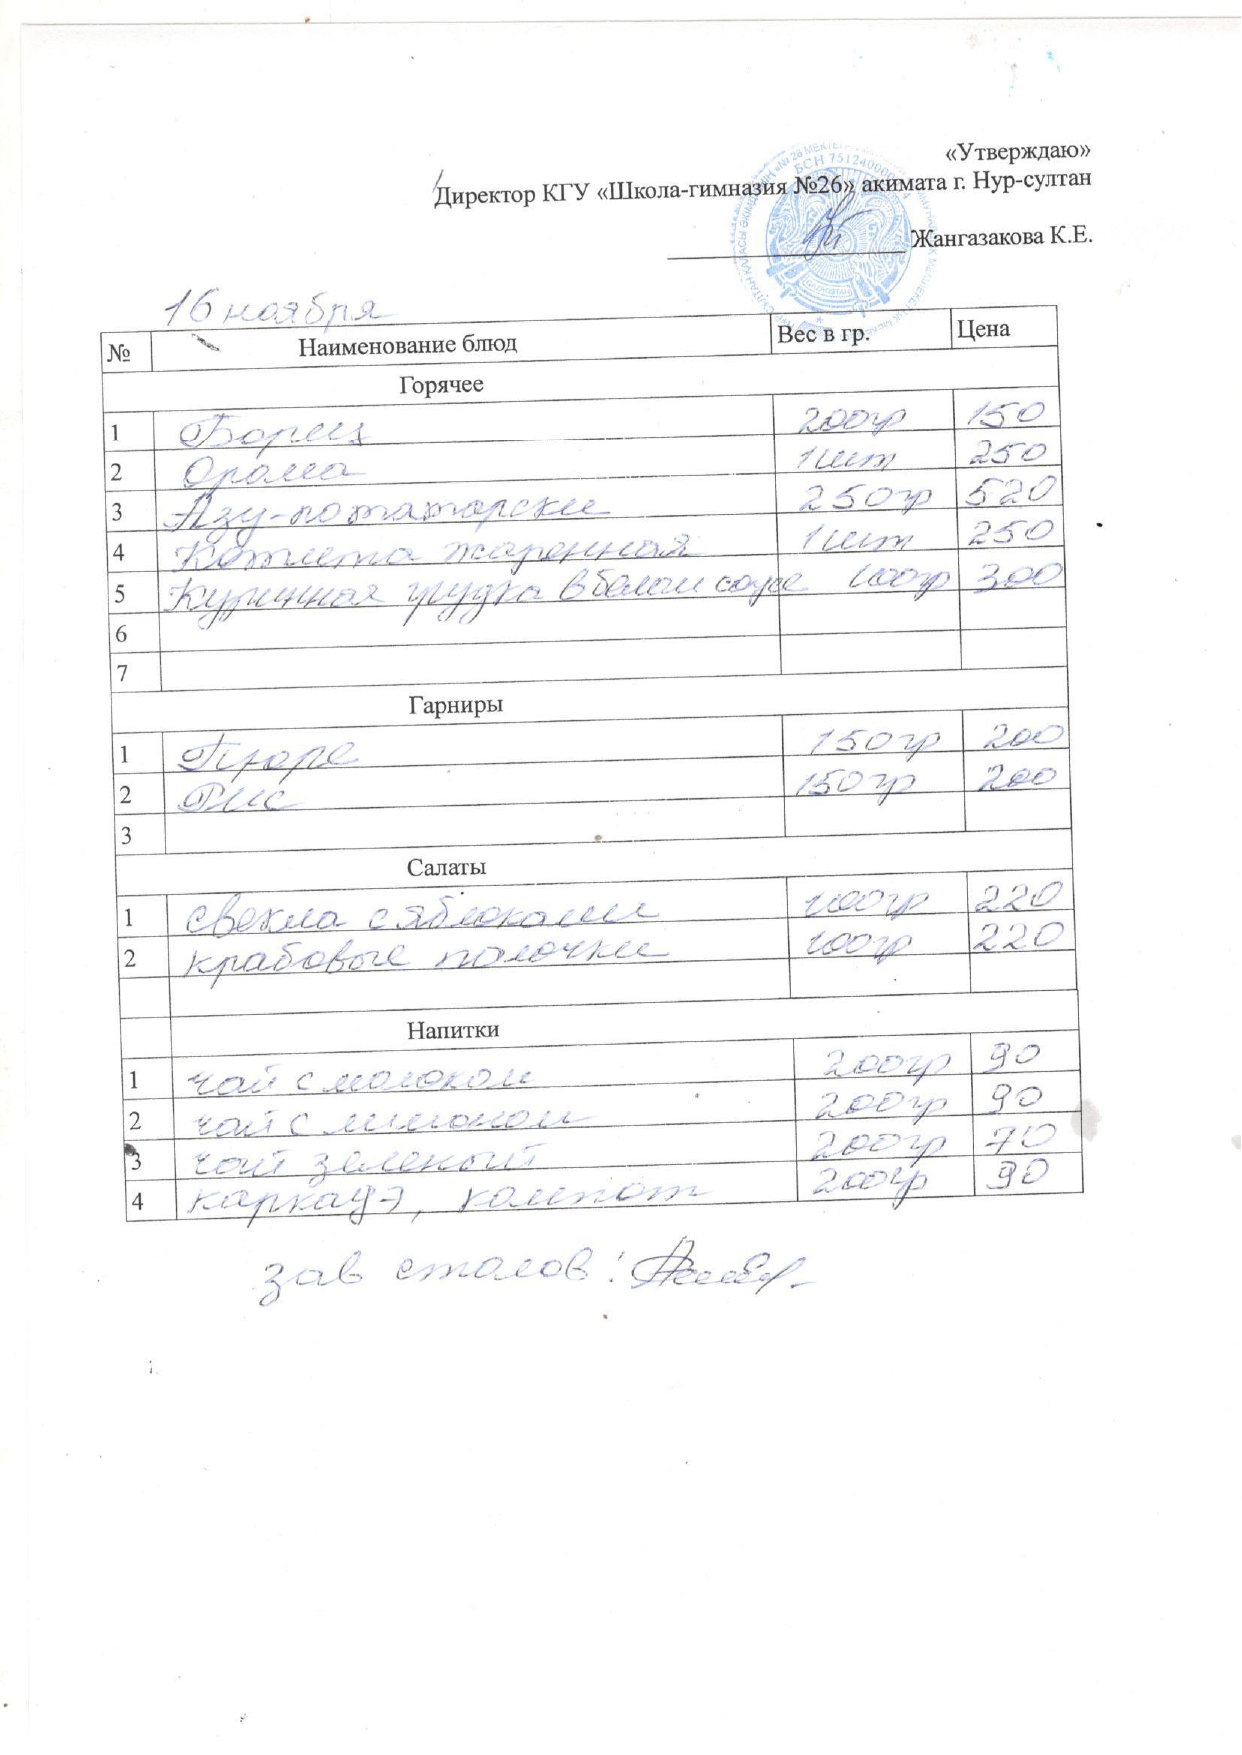 «Утверждаю»
Директор КГУ «Школа-гимназия №26» акимата г. Нур-султан
Жангазакова К.Е.
16 ноября
№ Наименование блюд Вес в гр. Цена
Горячее
1 Борщ 200гр 150
2 Орама 1шт 250
3 Азу-по татарски 250гр 520
4 Котлета жаренная 1шт 250
5 Куринная грудка в белом соусе 100гр 300
6
7
Гарниры
1 Пюре 150гр 200
2 Рис 150гр 200
3
Салаты
1 свекла с яблоками 100гр 220
2 крабовые палочки 100гр 220
Напитки
1 чай с молоком 200гр 90
2 чай с лимоном 200гр 90
3 чай зеленый 200гр 70
4 каркаде, компот 200гр 90
зав столов: